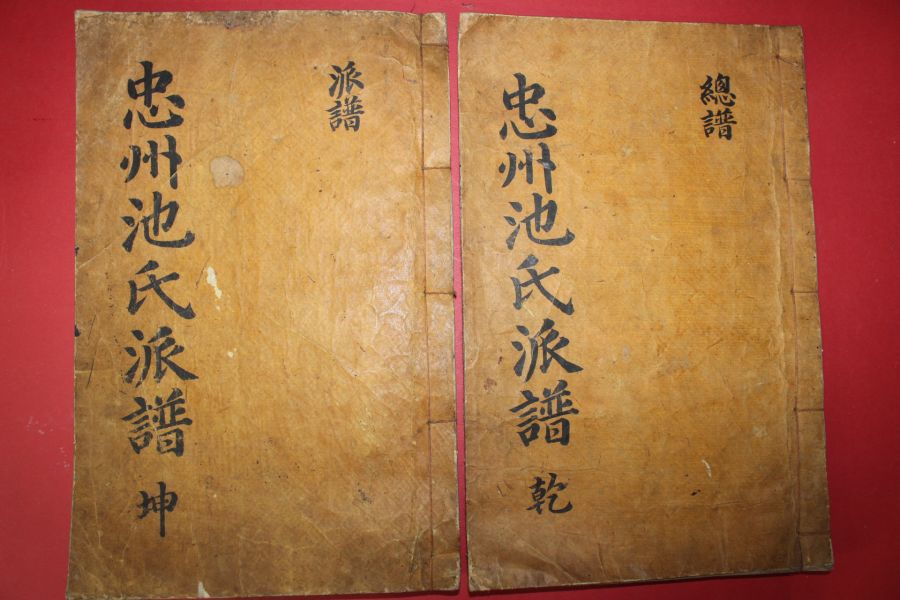 總譜
忠州池氏派譜 乾
派譜
忠州池氏派譜 坤